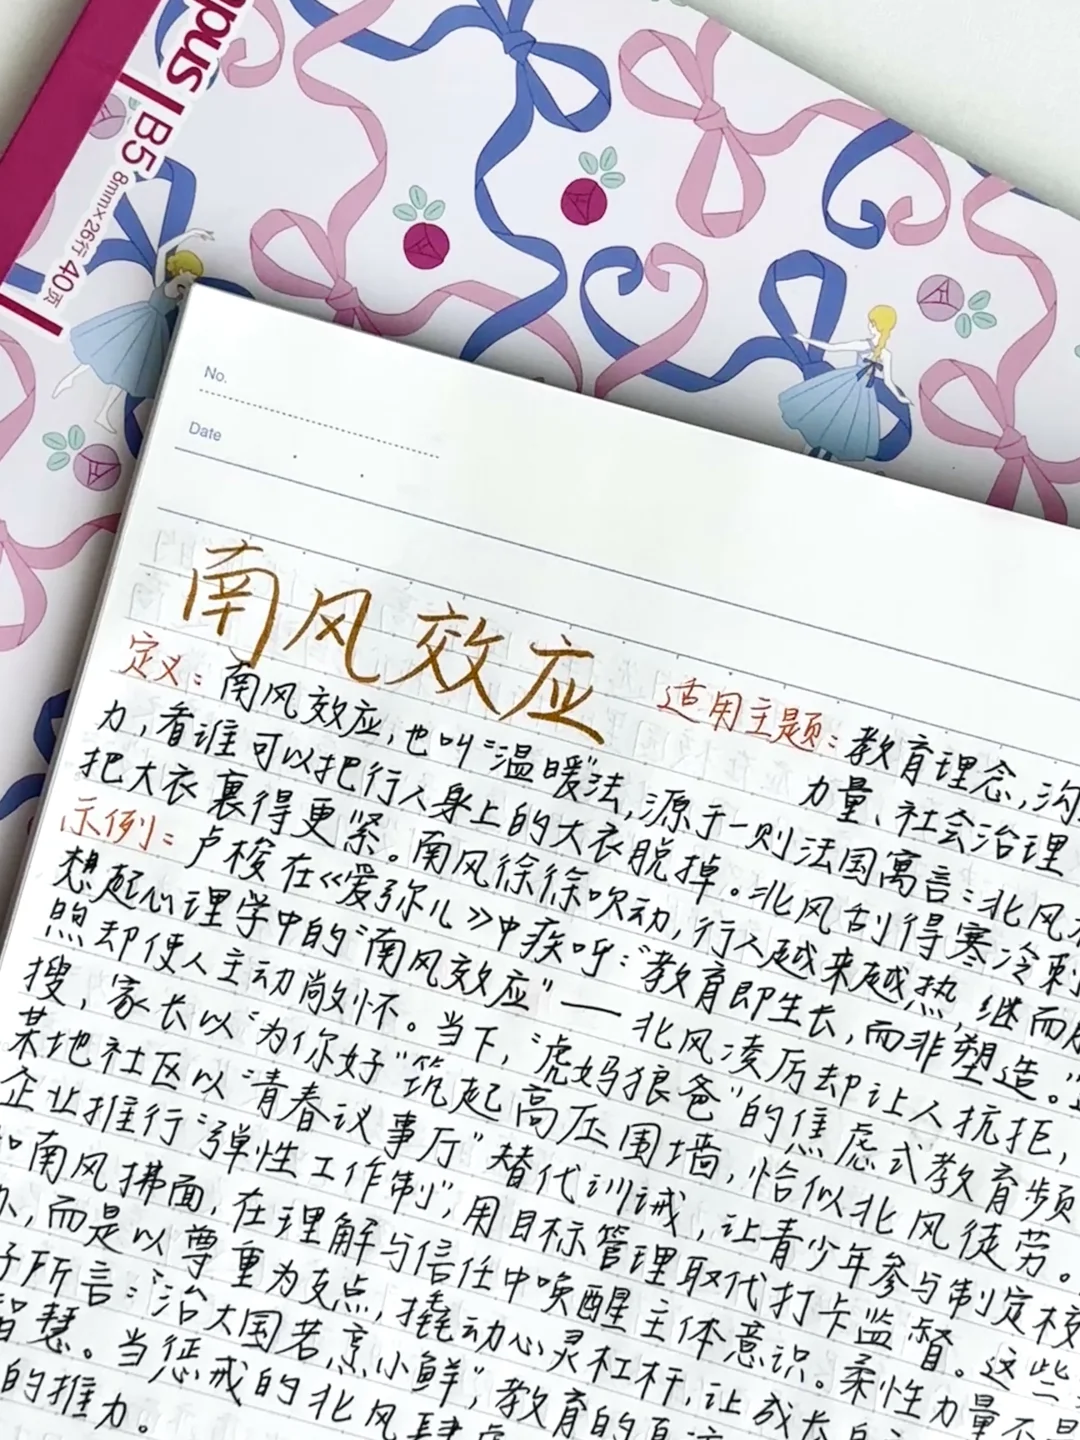 pus
B5
8mm×26行
40页
No.
Date
南风效应
适用主题：教育理念，沟
力量、社会治理
定义：南风效应，也叫“温暖”法，源于一则法国寓言：北风
力，看谁可以把行人身上的大衣脱掉。北风刮得寒冷刺
把大衣裹得更紧。南风徐徐吹动，行人越来越热，继而
示例：卢梭在《爱弥儿》中疾呼：“教育即生长，而非塑造。”
想起心理学中的“南风效应”——北风凌厉却让人抗拒，
煦却使人主动敞怀。当下，“虎妈狼爸”的焦虑式教育频
搜，家长以“为你好”筑起高压围墙，恰似北风徒劳。
某地社区以“青春议事厅”替代训诫，让青少年参与制定校
企业推行“弹性工作制”，用目标管理取代打卡监督。这些
如南风拂面，在理解与信任中唤醒主体意识。柔性力量不是
，而是以尊重为支点，撬动心灵杠杆，让成长
子所言：“治大国若烹小鲜”，教育的真
智慧。当惩戒的北风肆虐
的推力。